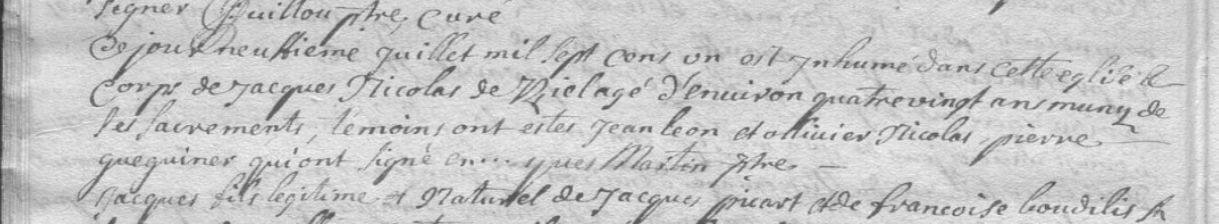 signer Guillou ptre, curé
Ce jour neuffieme juillet mil sept cens un est Inhumé dans cette eglise le
corps de jacques Nicolas de agé d'enuiron quatrevingt ans muny de
ses sacrements, témoins ont estes jean leon et ollivier Nicolas, pierre
gueguiner qui ont signé yves Martin ptre
jacques fils legitime et Naturel de jacques picart et de francoise boudilis